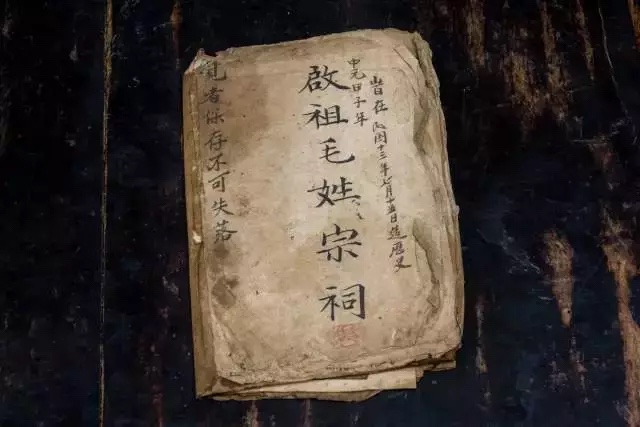 旹在民国十三年七月十五日造歷史
中元甲子年
啟祖毛姓宗祠
見者保存不可失落